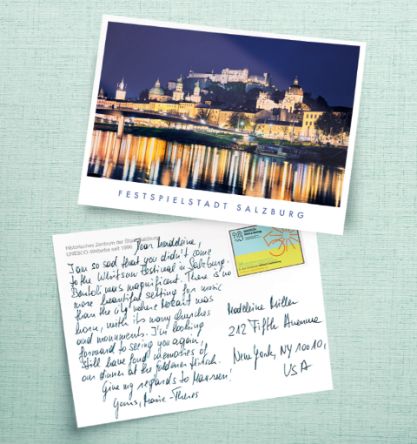 FESTSPIELSTADT SALZBURG
Historisches Zentrum der Stadt Salzburg
UNESCO-Welterbe seit 1996
Dear Madeleine,
I am so sad that you didn't come
to the Whitsun Festival in Salzburg.
Bartoli was magnificent. There is no
more beautiful setting for music
than the city where Mozart was
born, with its many churches
and monuments. I'm looking
forward to seeing you again,
still have fond memories of
our dinner at the Goldener Hirsch.
Give my regards to Maureen!
Yours, Marie-Theres
Madeleine Miller
212 Fifth Avenue
New York, NY 10010,
USA